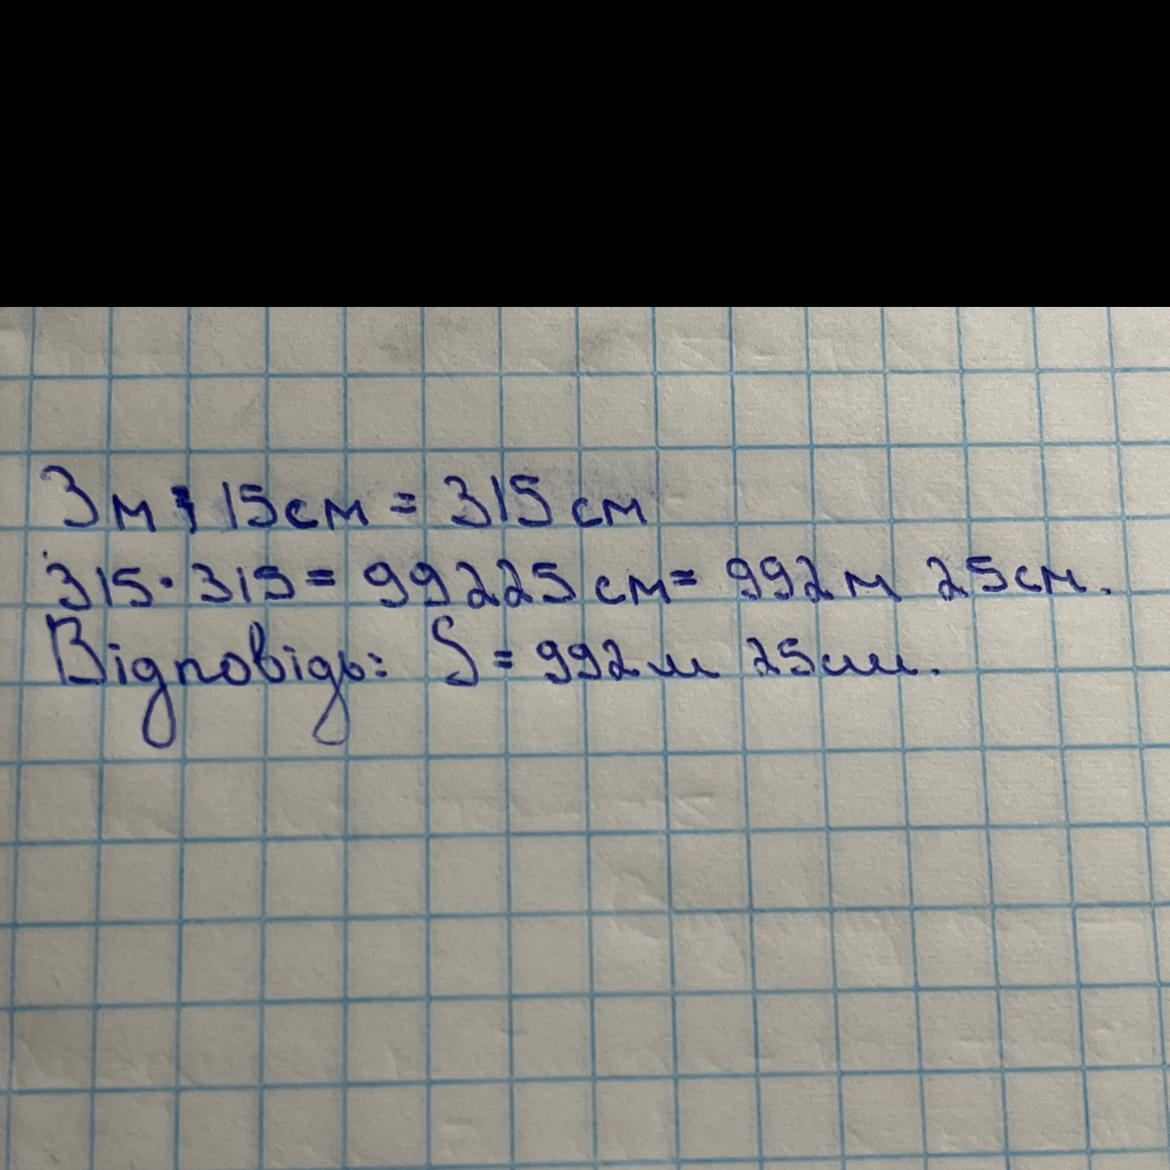 3м 15см = 315 см
315 · 315 = 99225 см = 992 м 25 см.
Відповідь: S = 992 м 25 см.